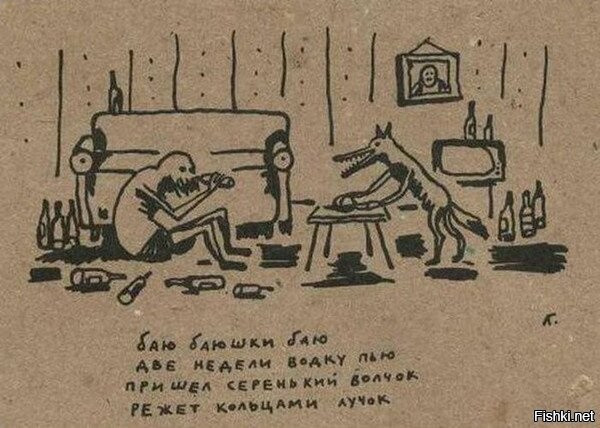 К.
баю баюшки баю
две недели водку пью
пришел серенький волчок
режет кольцами лучок
Fishki.net